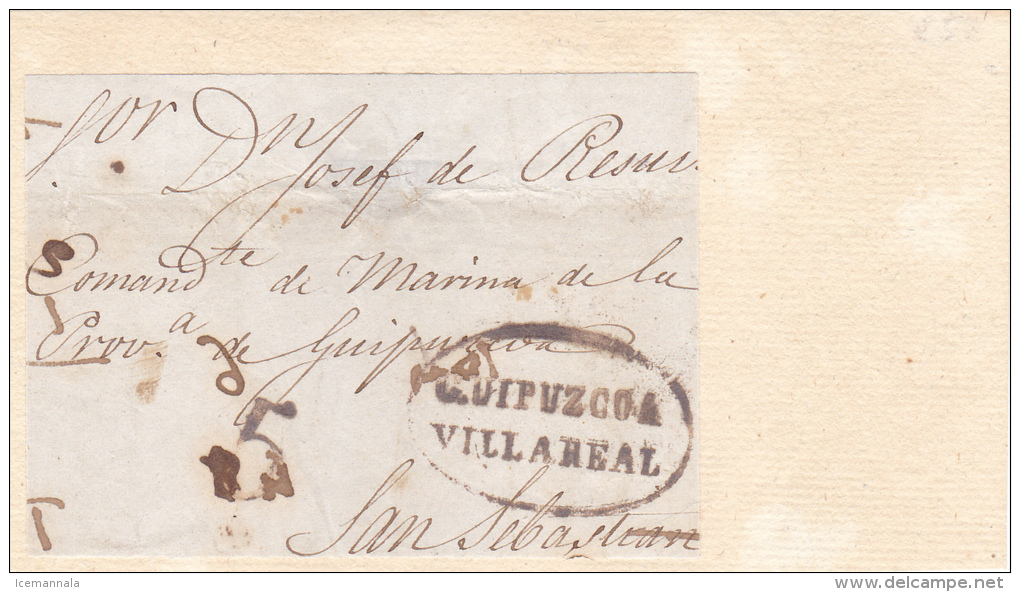 Sor Dn Josef de
Comandte de Marina de la
Prov.a de Guipuzcoa
5
GUIPUZCOA
VILLAREAL
San Sebastian
Icemannala
delcampe.net